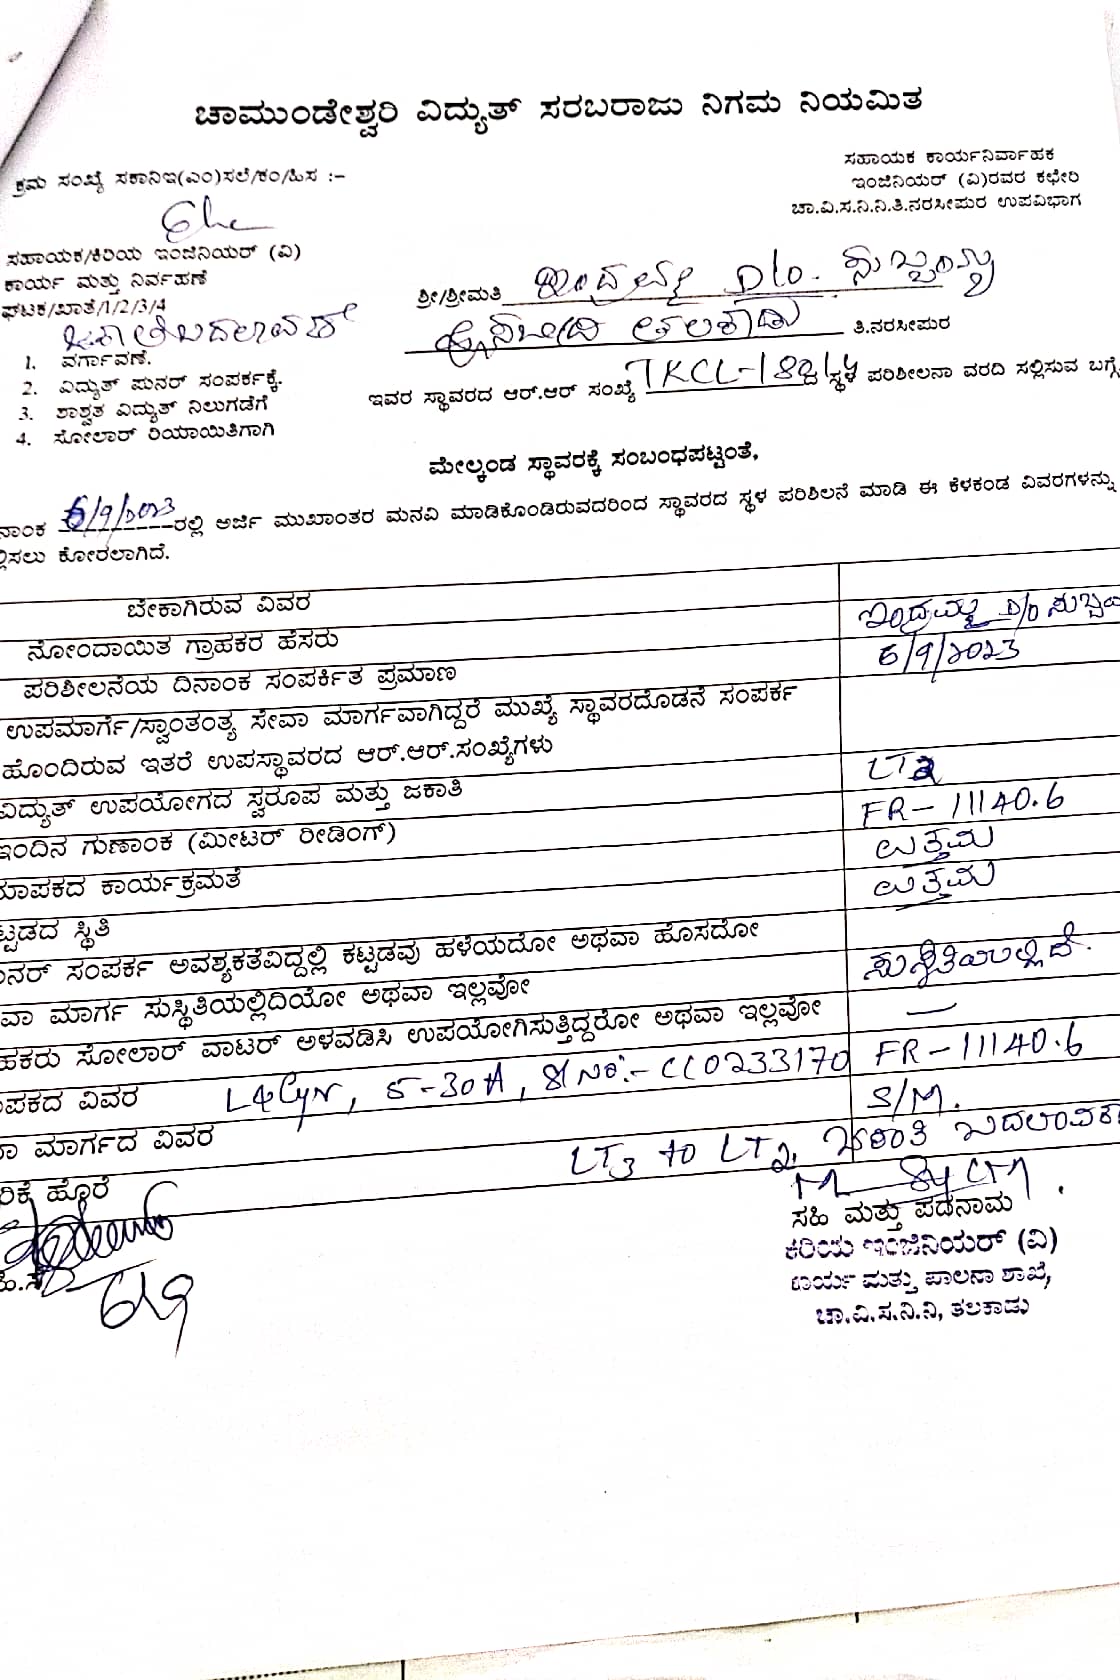 ಚಾಮುಂಡೇಶ್ವರಿ ವಿದ್ಯುತ್ ಸರಬರಾಜು ನಿಗಮ ನಿಯಮಿತ
ಕ್ರಮ ಸಂಖ್ಯೆ ಸಕಾನಿಇ(ಎಂ)ಸಲೆ/ಕಂ/ಹಿಸ :–
ಸಹಾಯಕ ಕಾರ್ಯನಿರ್ವಾಹಕ
ಇಂಜಿನಿಯರ್ (ವಿ)ರವರ ಕಛೇರಿ
ಚಾ.ವಿ.ಸ.ನಿ.ನಿ.ತಿ.ನರಸೀಪುರ ಉಪವಿಭಾಗ
ಸಹಾಯಕ/ಕಿರಿಯ ಇಂಜಿನಿಯರ್ (ವಿ)
ಕಾರ್ಯ ಮತ್ತು ನಿರ್ವಹಣೆ
ಘಟಕ/ಖಾತೆ/1/2/3/4
ಶ್ರೀ/ಶ್ರೀಮತಿ ಇಂದ್ರಮ್ಮ D/o. ಸುಬ್ಬಯ್ಯ
ತಲಕಾಡು ತಿ.ನರಸೀಪುರ
1. ವರ್ಗಾವಣೆ.
2. ವಿದ್ಯುತ್ ಪುನರ್ ಸಂಪರ್ಕಕ್ಕೆ.
3. ಶಾಶ್ವತ ವಿದ್ಯುತ್ ನಿಲುಗಡೆಗೆ
4. ಸೋಲಾರ್ ರಿಯಾಯಿತಿಗಾಗಿ
ಇವರ ಸ್ಥಾವರದ ಆರ್.ಆರ್ ಸಂಖ್ಯೆ ಸ್ಥಳ ಪರಿಶೀಲನಾ ವರದಿ ಸಲ್ಲಿಸುವ ಬಗ್ಗೆ
ಮೇಲ್ಕಂಡ ಸ್ಥಾವರಕ್ಕೆ ಸಂಬಂಧಪಟ್ಟಂತೆ,
ನಾಂಕ 6/9/2023 ರಲ್ಲಿ ಅರ್ಜಿ ಮುಖಾಂತರ ಮನವಿ ಮಾಡಿಕೊಂಡಿರುವದರಿಂದ ಸ್ಥಾವರದ ಸ್ಥಳ ಪರಿಶಿಲನೆ ಮಾಡಿ ಈ ಕೆಳಕಂಡ ವಿವರಗಳನ್ನು
ಲ್ಲಿಸಲು ಕೋರಲಾಗಿದೆ.
ಬೇಕಾಗಿರುವ ವಿವರ
ನೋಂದಾಯಿತ ಗ್ರಾಹಕರ ಹೆಸರು ಇಂದ್ರಮ್ಮ D/o ಸುಬ್ಬಯ
ಪರಿಶೀಲನೆಯ ದಿನಾಂಕ ಸಂಪರ್ಕಿತ ಪ್ರಮಾಣ 6/9/2023
ಉಪಮಾರ್ಗ/ಸ್ವಾಂತಂತ್ರ್ಯ ಸೇವಾ ಮಾರ್ಗವಾಗಿದ್ದರೆ ಮುಖ್ಯೆ ಸ್ಥಾವರದೊಡನೆ ಸಂಪರ್ಕ
ಹೊಂದಿರುವ ಇತರೆ ಉಪಸ್ಥಾವರದ ಆರ್.ಆರ್.ಸಂಖ್ಯೆಗಳು
ವಿದ್ಯುತ್ ಉಪಯೋಗದ ಸ್ವರೂಪ ಮತ್ತು ಜಕಾತಿ LT2
ಇಂದಿನ ಗುಣಾಂಕ (ಮೀಟರ್ ರೀಡಿಂಗ್) FR – 11140.6
ಮಾಪಕದ ಕಾರ್ಯಕ್ರಮತೆ ಉತ್ತಮ
ಟ್ಟಡದ ಸ್ಥಿತಿ ಉತ್ತಮ
ುನರ್ ಸಂಪರ್ಕ ಅವಶ್ಯಕತೆವಿದ್ದಲ್ಲಿ ಕಟ್ಟಡವು ಹಳೆಯದೋ ಅಥವಾ ಹೊಸದೋ
ವಾ ಮಾರ್ಗ ಸುಸ್ಥಿತಿಯಲ್ಲಿದಿಯೋ ಅಥವಾ ಇಲ್ಲವೋ ಸುಸ್ಥಿತಿಯಲ್ಲಿದೆ.
ಹಕರು ಸೋಲಾರ್ ವಾಟರ್ ಅಳವಡಿಸಿ ಉಪಯೋಗಿಸುತ್ತಿದ್ದರೋ ಅಥವಾ ಇಲ್ಲವೋ —
ಾಪಕದ ವಿವರ 5-30A, Sl No:- CC0233170 FR – 11140.6
ಾ ಮಾರ್ಗದ ವಿವರ S/M.
ರಿಕೆ ಹೊರೆ LT3 to LT2, ಜಕಾತಿ
ಸಹಿ ಮತ್ತು ಪದನಾಮ
ಕಿರಿಯ ಇಂಜಿನಿಯರ್ (ವಿ)
ಕಾರ್ಯ ಮತ್ತು ಪಾಲನಾ ಶಾಖೆ,
ಚಾ.ವಿ.ಸ.ನಿ.ನಿ, ತಲಕಾಡು